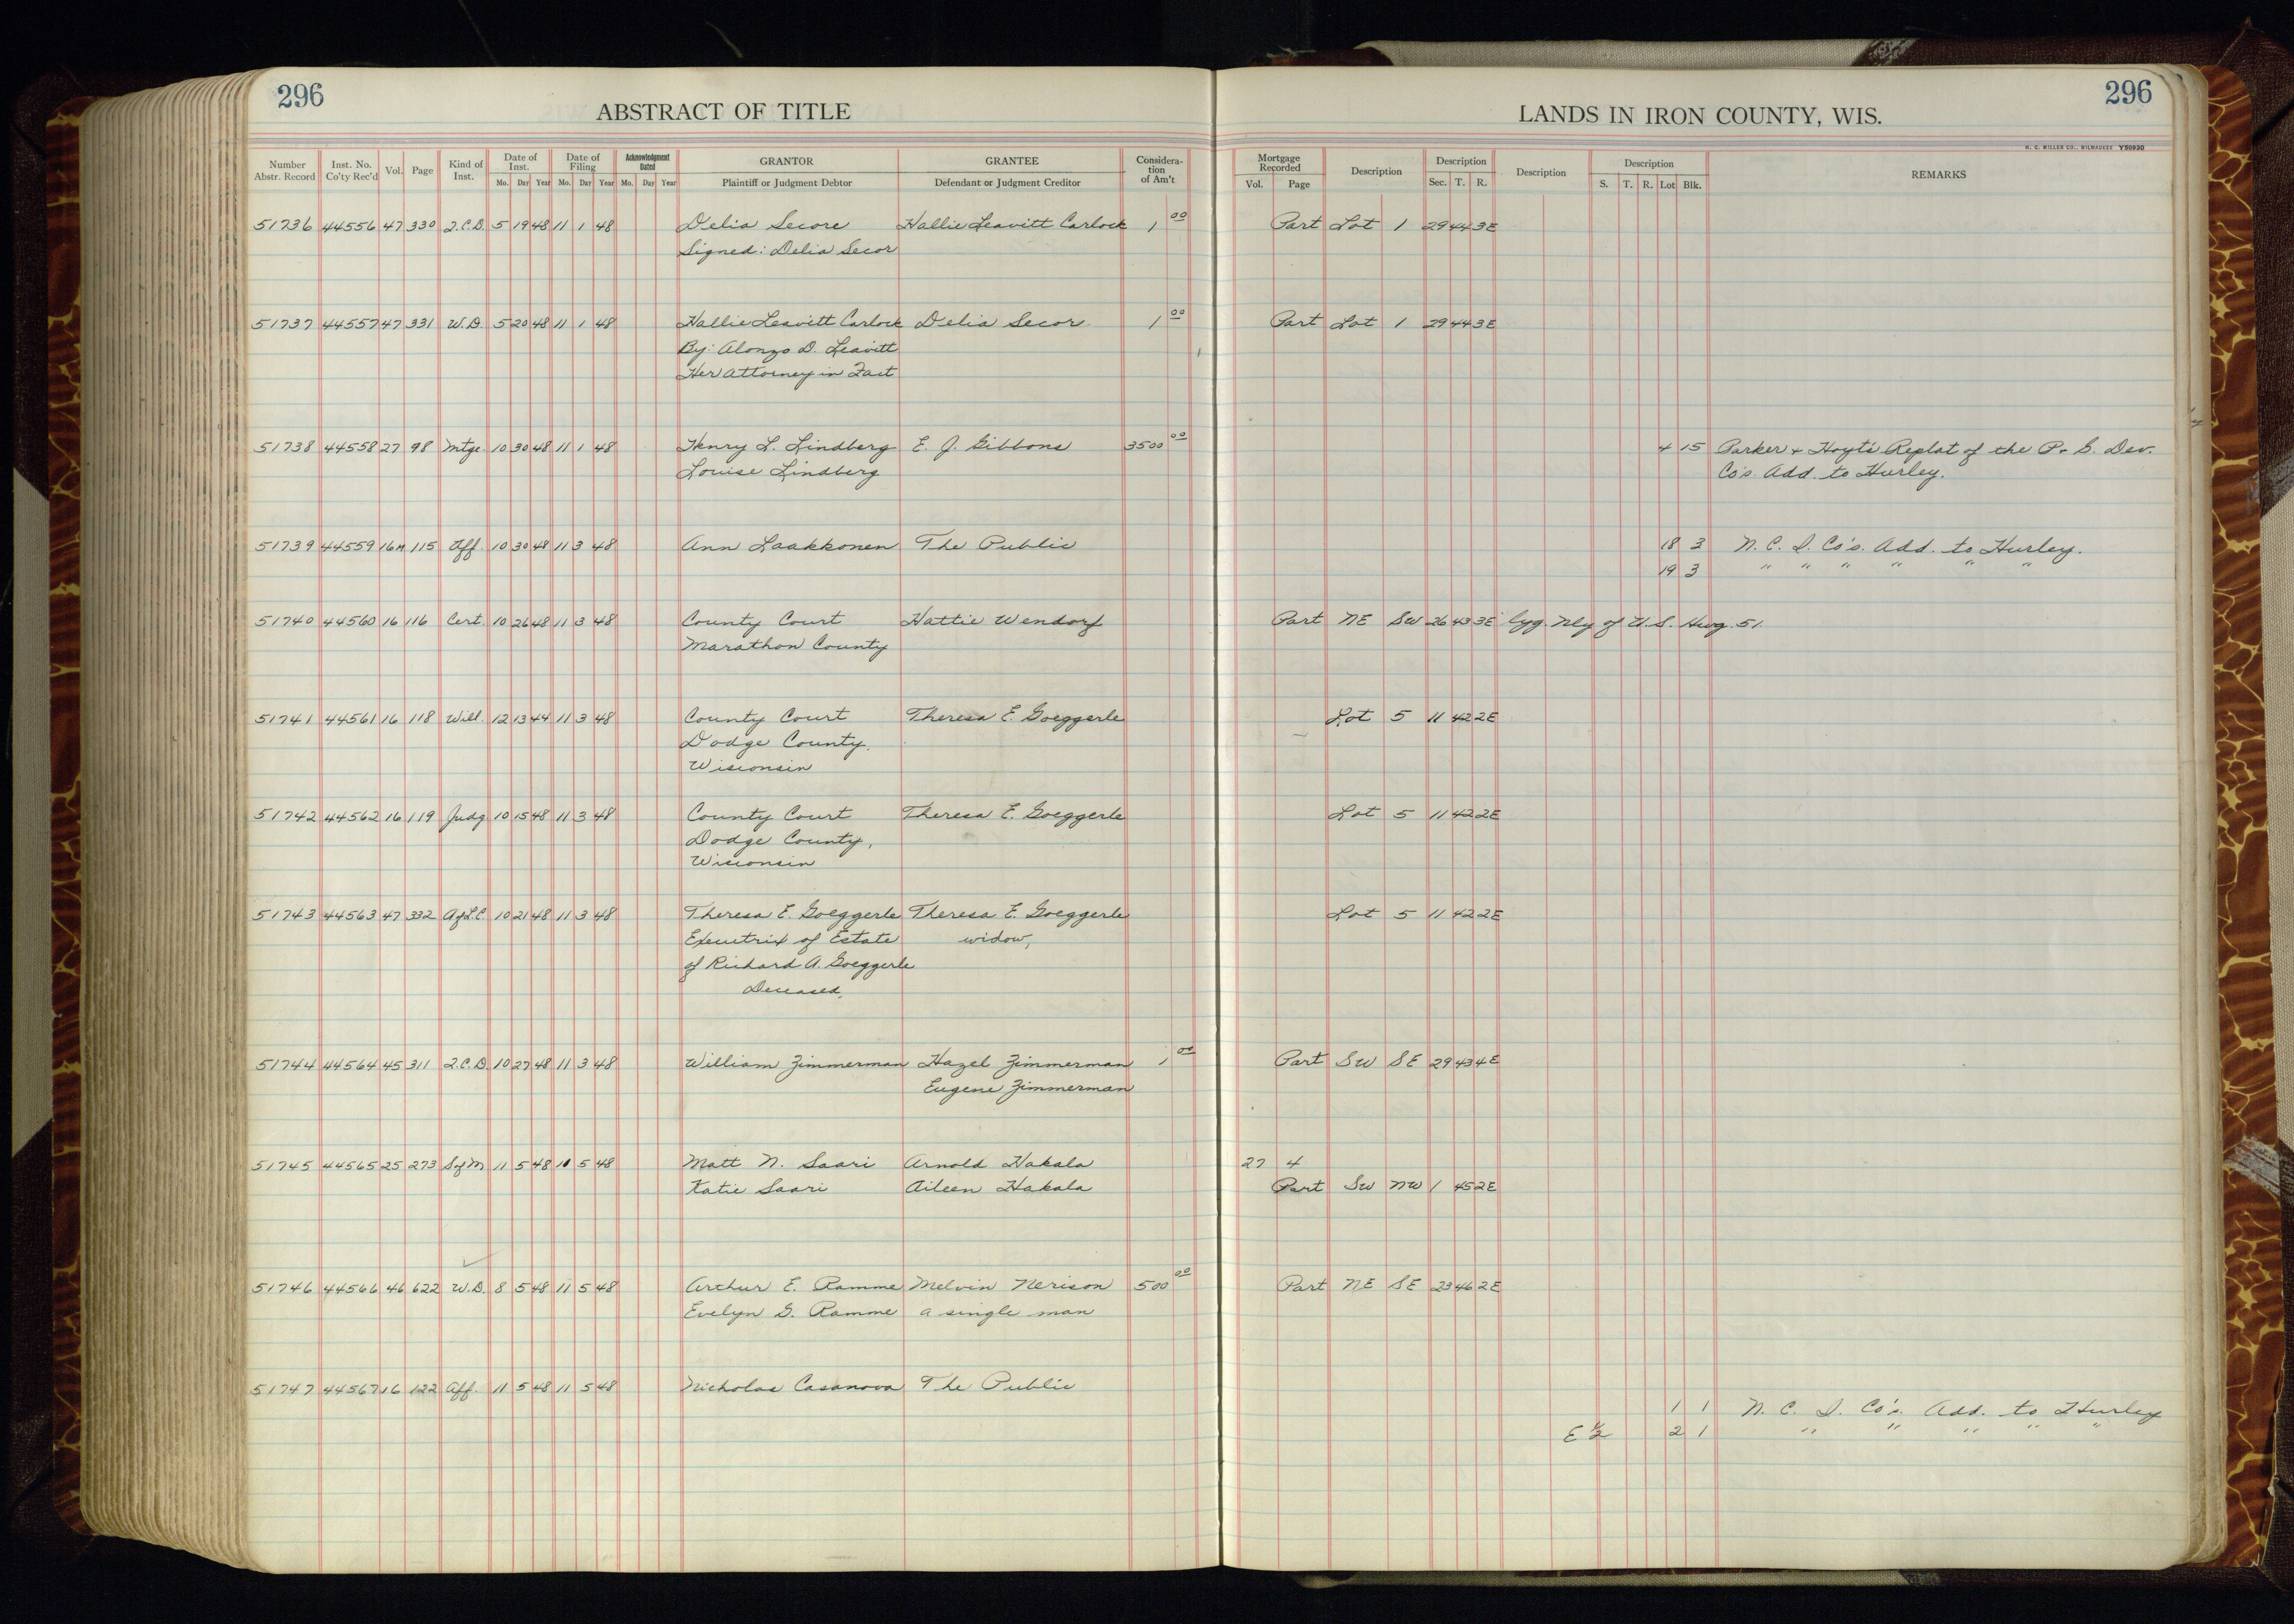 296
ABSTRACT OF TITLE
Number Abstr. Record | Inst. No. Co'ty Rec'd | Vol. | Page | Kind of Inst. | Date of Inst. Mo. Day Year | Date of Filing Mo. Day Year | Acknowledgment Dated Mo. Day Year | GRANTOR Plaintiff or Judgment Debtor | GRANTEE Defendant or Judgment Creditor | Considera-tion of Am't
51736 44556 47 330 Q.C.D. 5 19 48 11 1 48 Delia Secore Hallie Leavitt Carlock 1 00
Signed: Delia Secor
51737 44557 47 331 W.D. 5 20 48 11 1 48 Hallie Leavitt Carlock Delia Secor 1 00
By: Alonzo D. Leavitt
Her Attorney in Fact
51738 44558 27 98 Mtge. 10 30 48 11 1 48 Henry L. Lindberg E. J. Gibbons 3500 00
Louise Lindberg
51739 44559 16M 115 Aff. 10 30 48 11 3 48 Ann Laakkonen The Public
51740 44560 16 116 Cert. 10 26 48 11 3 48 County Court Hattie Wendorf
Marathon County
51741 44561 16 118 Will. 12 13 44 11 3 48 County Court Theresa E. Goeggerle
Dodge County.
Wisconsin
51742 44562 16 119 Judg 10 15 48 11 3 48 County Court Theresa E. Goeggerle
Dodge County,
Wisconsin
51743 44563 47 332 A of L.C. 10 21 48 11 3 48 Theresa E. Goeggerle Theresa E. Goeggerle
Executrix of Estate widow,
of Richard A. Goeggerle
Deceased,
51744 44564 45 311 Q.C.D. 10 27 48 11 3 48 William Zimmerman Hazel Zimmerman 1 00
Eugene Zimmerman
51745 44565 25 273 S of M 11 5 48 11 5 48 Matt N. Saari Arnold Hakala
Katie Saari Aileen Hakala
51746 44566 46 622 W.D. 8 5 48 11 5 48 Arthur E. Ramme Melvin Nerison 500 00
Evelyn G. Ramme a single man
51747 44567 16 122 Aff. 11 5 48 11 5 48 Nicholas Casanova The Public
296
LANDS IN IRON COUNTY, WIS.
H. C. MILLER CO., MILWAUKEE Y50930
Mortgage Recorded Vol. Page | Description | Description Sec. T. R. | Description | Description S. T. R. Lot Blk. | REMARKS
Part Lot 1 29 44 3E
Part Lot 1 29 44 3E
4 15 Parker & Hoyt's Replat of the P. & G. Dev.
Co's. Add. to Hurley.
18 3 N. C. I. Co's. Add. to Hurley.
19 3 " " " " " "
Part NE SW 26 43 3E lyg. Nly of U.S. Hwg. 51.
Lot 5 11 42 2E
Lot 5 11 42 2E
Lot 5 11 42 2E
Part SW SE 29 43 4E
27 4
Part SW NW 1 45 2E
Part NE SE 23 46 2E
1 1 N. C. I. Co's. Add. to Hurley
E ½ 2 1 " " " " "